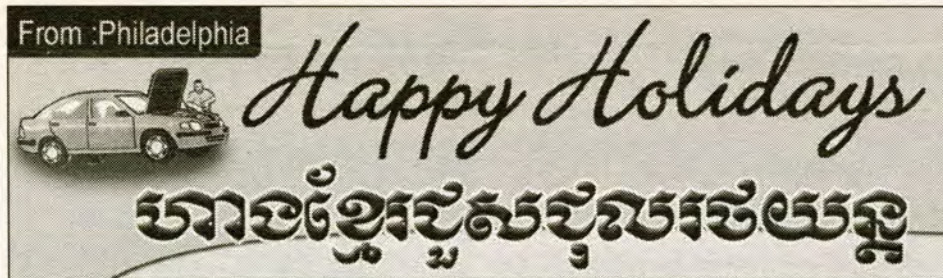 From :Philadelphia
Happy Holidays
ហាងខ្មែរជួសជុលរថយន្ត